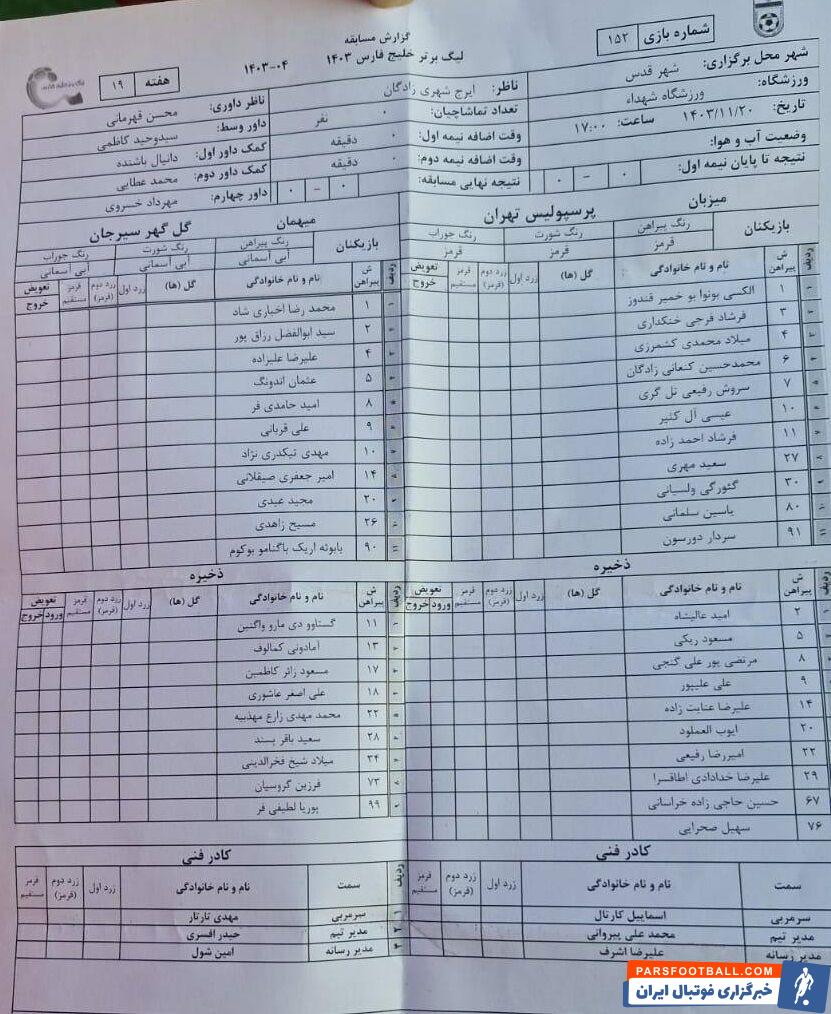 گزارش مسابقه
لیگ برتر خلیج فارس ۱۴۰۳ ۰۴-۱۴۰۳
شماره بازی ۱۵۲
هفته ۱۹
شهر محل برگزاری: شهر قدس
ورزشگاه: ورزشگاه شهداء
تاریخ: ۱۴۰۳/۱۱/۲۰ ساعت: ۱۷:۰۰
وضعیت آب و هوا:
نتیجه تا پایان نیمه اول: ۰ - ۰
ناظر: ایرج شهری زادگان
تعداد تماشاچیان: ۰ نفر
وقت اضافه نیمه اول: ۰ دقیقه
وقت اضافه نیمه دوم: ۰ دقیقه
نتیجه نهایی مسابقه: ۰ - ۰
ناظر داوری: محسن قهرمانی
داور وسط: سیدوحید کاظمی
کمک داور اول: دانیال باشنده
کمک داور دوم: محمد عطایی
داور چهارم: مهرداد خسروی
میزبان پرسپولیس تهران
بازیکنان رنگ پیراهن رنگ شورت رنگ جوراب
قرمز قرمز قرمز
ردیف ش پیراهن نام و نام خانوادگی گل (ها) زرد اول زرد دوم (قرمز) قرمز مستقیم تعویض خروج
۱ ۱ الکسی بونوا بو خمیر قندوز
۲ ۳ فرشاد فرجی خنکداری
۳ ۴ میلاد محمدی کشمرزی
۴ ۶ محمدحسین کنعانی زادگان
۵ ۷ سروش رفیعی تل گری
۶ ۱۰ عیسی آل کثیر
۷ ۱۱ فرشاد احمد زاده
۸ ۲۷ سعید مهری
۹ ۳۰ گئورگی ولسیانی
۱۰ ۸۰ یاسین سلمانی
۱۱ ۹۱ سردار دورسون
ذخیره
ردیف ش پیراهن نام و نام خانوادگی گل (ها) زرد اول زرد دوم (قرمز) قرمز مستقیم تعویض ورود خروج
۱ ۲ امید عالیشاه
۲ ۵ مسعود ریگی
۳ ۸ مرتضی پور علی گنجی
۹ علی علیپور
۱۴ علیرضا عنایت زاده
۲۰ ایوب العملود
۲۲ امیررضا رفیعی
۲۹ علیرضا خدادادی اطاقسرا
۶۷ حسین حاجی زاده خراسانی
۷۶ سهیل صحرایی
کادر فنی
سمت نام و نام خانوادگی زرد اول زرد دوم (قرمز) قرمز مستقیم
سرمربی اسماییل کارتال
مدیر تیم محمد علی پیروانی
مدیر رسانه علیرضا اشرف
میهمان گل گهر سیرجان
بازیکنان رنگ پیراهن رنگ شورت رنگ جوراب
آبی آسمانی آبی آسمانی آبی آسمانی
ردیف ش پیراهن نام و نام خانوادگی گل (ها) زرد اول زرد دوم (قرمز) قرمز مستقیم تعویض خروج
۱ ۱ محمد رضا اخباری شاد
۲ ۲ سید ابوالفضل رزاق پور
۳ ۴ علیرضا علیزاده
۴ ۵ عثمان اندونگ
۵ ۸ امید حامدی فر
۶ ۹ علی قربانی
۷ ۱۰ مهدی تیکدری نژاد
۸ ۱۴ امیر جعفری صیقلانی
۹ ۲۰ مجید عیدی
۱۰ ۲۶ مسیح زاهدی
۱۱ ۹۰ یابوئه اریک باگنامو بوکوم
ذخیره
ردیف ش پیراهن نام و نام خانوادگی گل (ها) زرد اول زرد دوم (قرمز) قرمز مستقیم تعویض ورود خروج
۱ ۱۱ گستاوو دی مارو واگنین
۲ ۱۳ آمادونی کمالوف
۳ ۱۷ مسعود زائر کاظمین
۴ ۱۸ علی اصغر عاشوری
۵ ۲۲ محمد مهدی زارع مهذبیه
۶ ۲۸ سعید باقر پسند
۷ ۳۴ میلاد شیخ فخرالدینی
۸ ۷۳ فرزین گروسیان
۹ ۹۹ پوریا لطیفی فر
کادر فنی
ردیف سمت نام و نام خانوادگی زرد اول زرد دوم (قرمز) قرمز مستقیم
۱ سرمربی مهدی تارتار
۲ مدیر تیم حیدر افسری
۳ مدیر رسانه امین شول
PARSFOOTBALL.COM
خبرگزاری فوتبال ایران